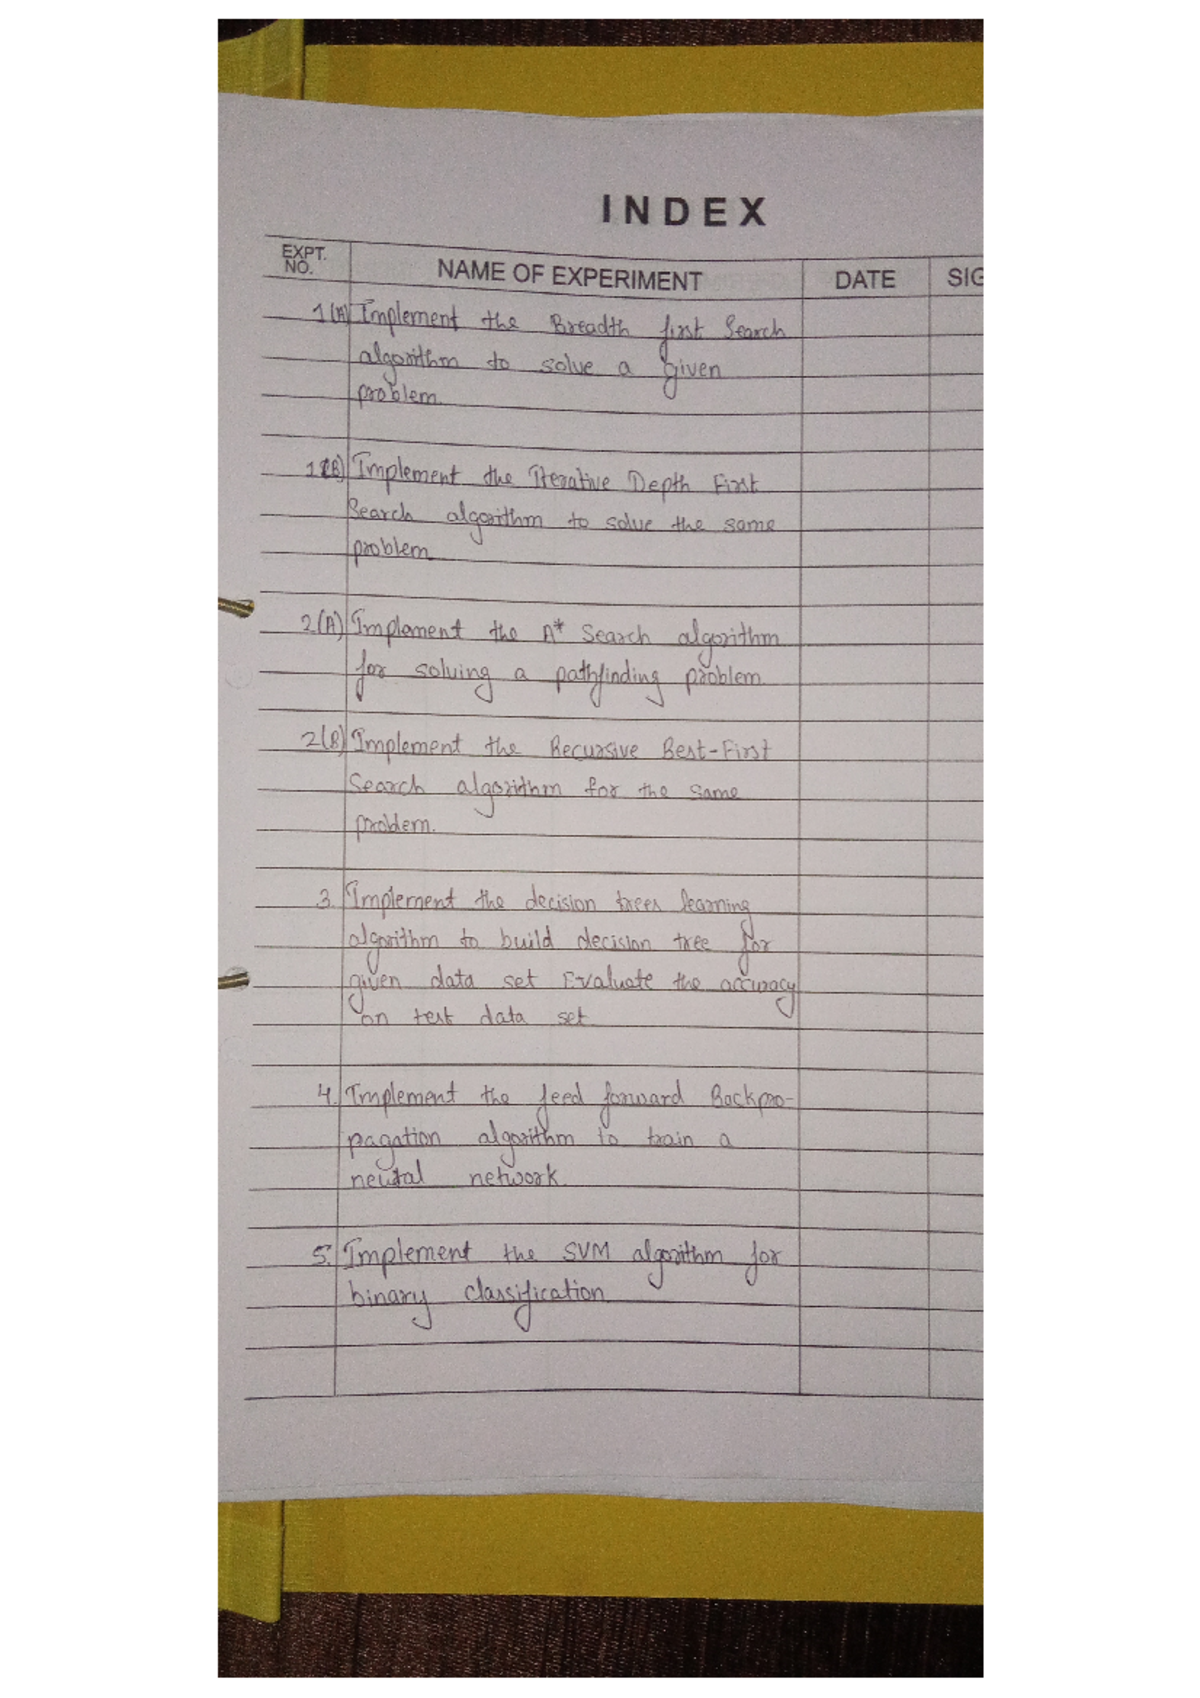 INDEX
EXPT. NO. NAME OF EXPERIMENT DATE SIG
1(A) Implement the Breadth first Search
algorithm to solve a given
problem.
1(B) Implement the Iterative Depth First
Search algorithm to solve the same
problem
2(A) Implement the A* Search algorithm
for solving a pathfinding problem.
2(B) Implement the Recursive Best-First
Search algorithm for the same
problem.
3. Implement the decision trees learning
algorithm to build decision tree for
given data set Evaluate the accuracy
on test data set.
4. Implement the feed forward Backpro-
pagation algorithm to train a
neutal network.
5. Implement the SVM algorithm for
binary classification.